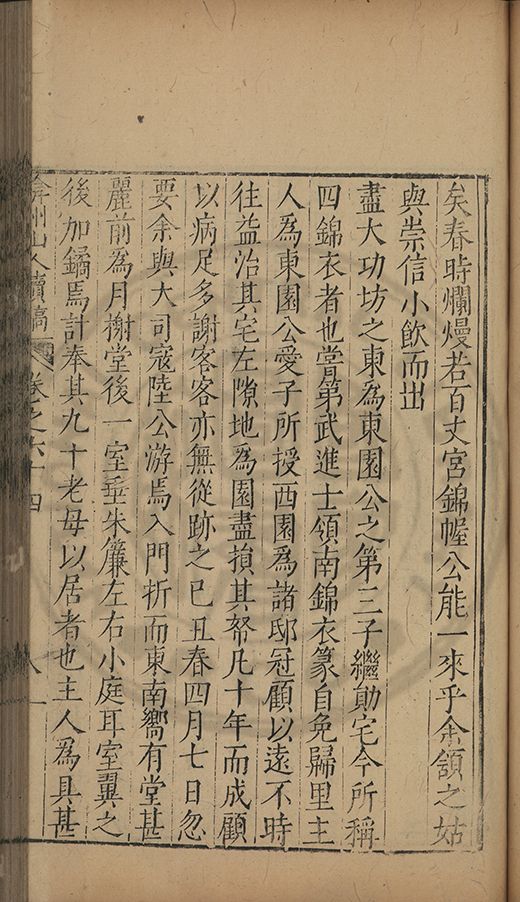 矣春時爛熳若百丈宮錦幄公能一來乎余頷之姑
與崇信小飲而出
盡大功坊之東為東園公之第三子繼勛宅今所稱
四錦衣者也嘗第武進士領南錦衣篆自免歸里主
人為東園公愛子所授西園為諸邸冠顧以遠不時
往益治其宅左隙地為園盡損其帑凡十年而成顧
以病足多謝客客亦無從跡之已丑春四月七日忽
要余與大司寇陸公游焉入門折而東南嚮有堂甚
麗前為月榭堂後一室垂朱簾左右小庭耳室翼之
後加鐍焉計奉其九十老母以居者也主人為具甚
弇州山人續稿 卷之六十四 八